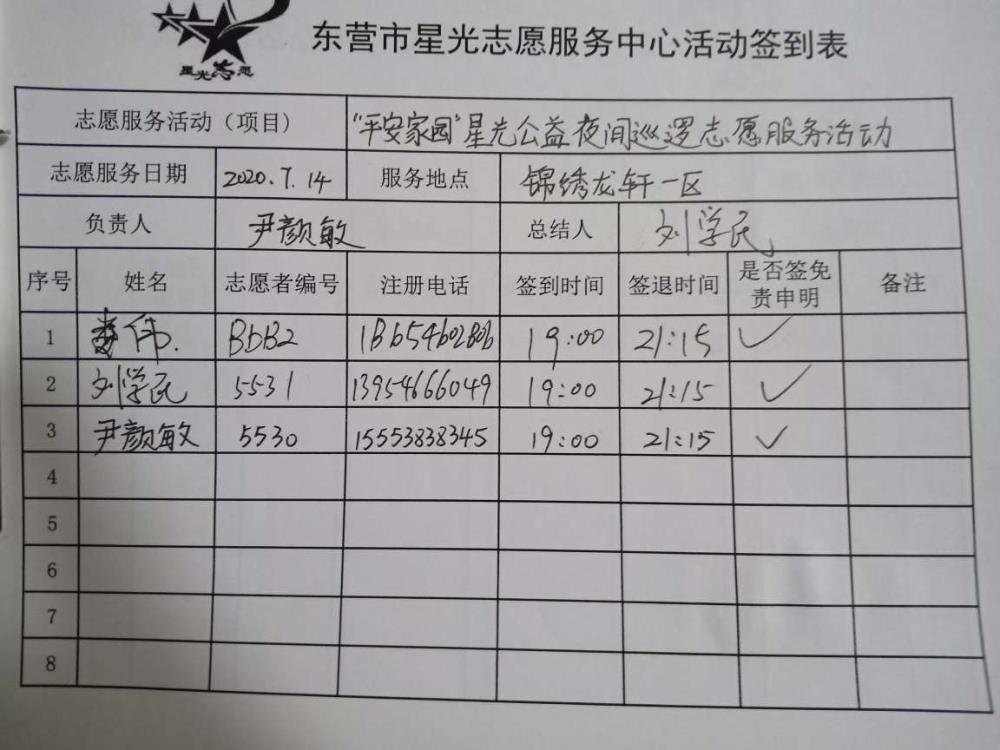 星光志愿
东营市星光志愿服务中心活动签到表
志愿服务活动（项目） "平安家园"星光公益夜间巡逻志愿服务活动
志愿服务日期 2020.7.14 服务地点 锦绣龙轩一区
负责人 尹颜敏 总结人 刘学民
序号 姓名 志愿者编号 注册电话 签到时间 签退时间 是否签免责申明 备注
1 伟. 19:00 21:15 ✓
2 刘学民 5531 13954666049 19:00 21:15 ✓
3 尹颜敏 5530 15553838345 19:00 21:15 ✓
4
5
6
7
8